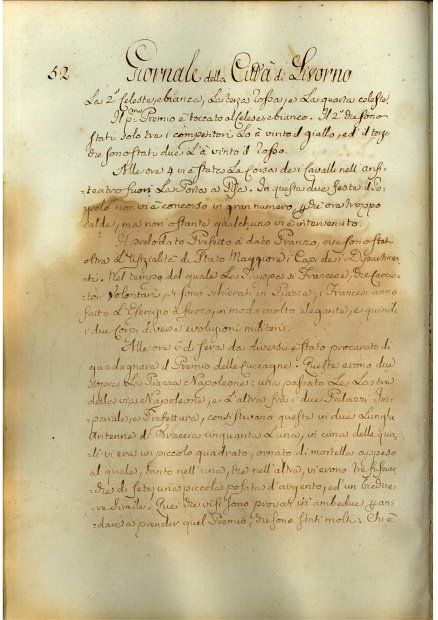 52 Giornale della Città di Livorno
La 2ª Celeste, e bianca, La terza rossa, e La quarta celeste.
Il pmo Premio è toccato al Celeste, e bianco. Il 2º che sono
stati solo tre i competitori Lo à vinto il giallo, ed il terzo
che sono stati due L'à vinto il rosso.
Alle ore 4 vi è stata La Corsa de i Cavalli nell'anfi-
teatro fuori La Porta a Pisa. In queste due feste il Po-
polo non vi è concorso in gran numero, p che era troppo
caldo, ma non ostante qualcheduno vi è intervenuto.
Il prelodato Prefetto à dato Pranzo, ove sono stati
oltre L'Ufizialità di Stato Maggiore, i Capi de i Dipartimen-
ti. Nel tempo del quale Le Truppe si Francese, che Caccia-
tori Volontari, si sono schierati in Piazza, i Francesi anno
fatto L'Esercizio a fuoco, in modo molto elegante, e quindi
i due Corpi diverse evoluzioni militari.
Alle ore 6 di sera da diversi è stato procurato di
guadagnare il Premio delle Cuccagne. Queste erono due
sopra La Piazza Napoleone: una passato Le Lastre
della via Napoleone, e L'altra fra i due Palazzi Im-
periale, e Prefettura, consistevano queste in due Lunghe
Antenne di Braccia cinquanta L'una, in cima delle qua-
li vi era un piccolo quadrato, ornato di mortella appeso
al quale, tanto nell'una, che nell'altra, vi erono tre
che di seta, una piccola posata d'argento, ed un
simile. Quei che vi si sono provati in ambedue p an-
dare a prender quel Premio, che sono stati molti. Chi è